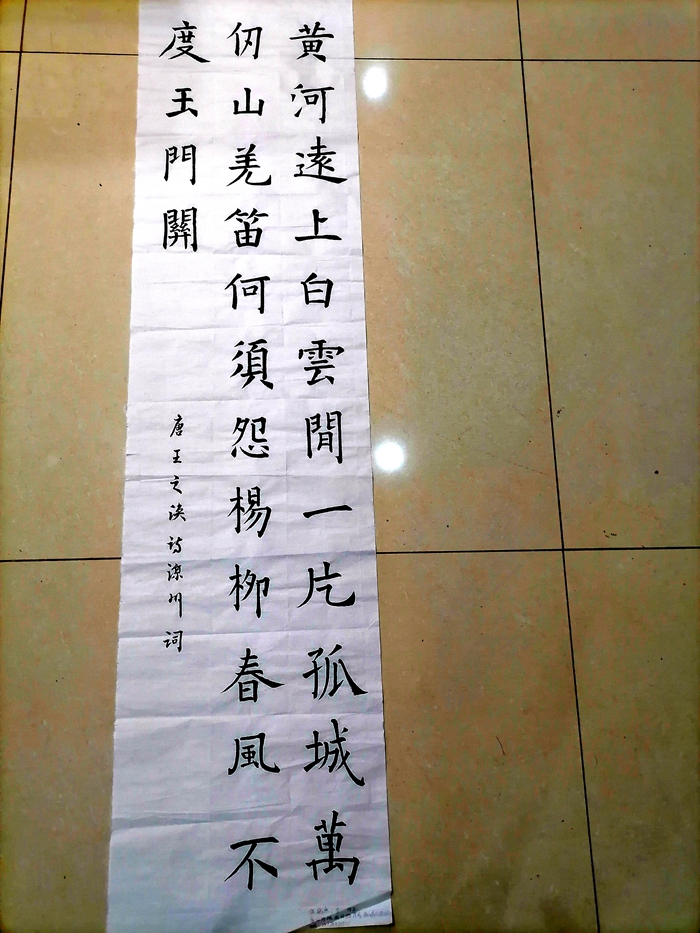 黄河遠上白雲閒一片孤城萬
仞山羌笛何須怨楊柳春風不
度玉門關
唐王之涣诗涼州词